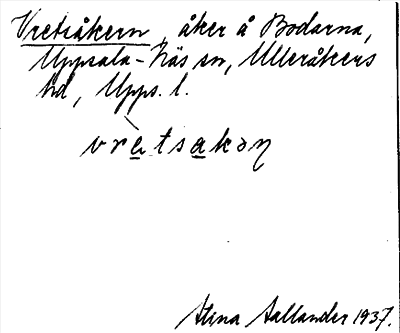 Vretsåkern, åker å Bodarna,
Uppsala-Näs sn, Ulleråkers
hd, Upps. l.
vrètsakəṇ
Stina Aallander 1937.